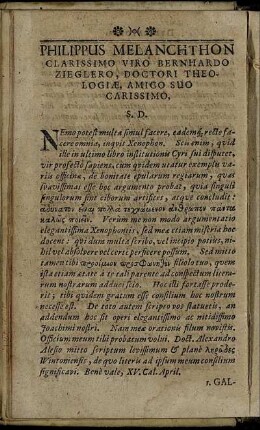 PHILIPPUS MELANCHTHON
CLARISSIMO VIRO BERNHARDO
ZIEGLERO, DOCTORI THEO-
LOGIÆ, AMICO SUO
CARISSIMO.
S. D.
NEmo potest multa simul facere, eademq; recte fa-
cere omnia, inqvit Xenophon. Scis enim, qvid
iste in ultimo libro institutionis Cyri sui disputet,
vir profecto sapiens, cum qvidem utatur exemplis va-
riis officinæ, de bonitate epularum regiarum, quas
svavissimas esse hoc argumento probat, qvia singuli
singulorum sint ciborum artifices, atque concludit:
πολλὰ
καλῶς ποιεῖν. Verum me non modo argumentatio
elegantissima Xenophontis, sed mea etiam miseria hoc
docent: qvi dum multa scribo, vel incipio potius, ni-
hil vel absolvere vel certe perficere possum. Sed misi o
tamen tibi filiolum, qvem
ista etiam ætate à te ali parente ad conspectum litera-
rum nostrarum adduco. Hoc isti fortasse prode-
rit; tibi qvidem gratum esse consilium hoc nostrum
necesse est. De ceto autem scripto nos statuisti, an
addendum hoc sit operi elegantissimo ac nitidissimo
Joachimi nostri. Nam mea orationis filum novisti.
Officium meum tibi probatum volui. Doct. Alexandro
Alesio mitto scriptum levissimum & planè
Wintoniensis, de qvo literis ad ipsum meum consilium
significavi. Bene vale, XV. Cal. April.
1. GAL-